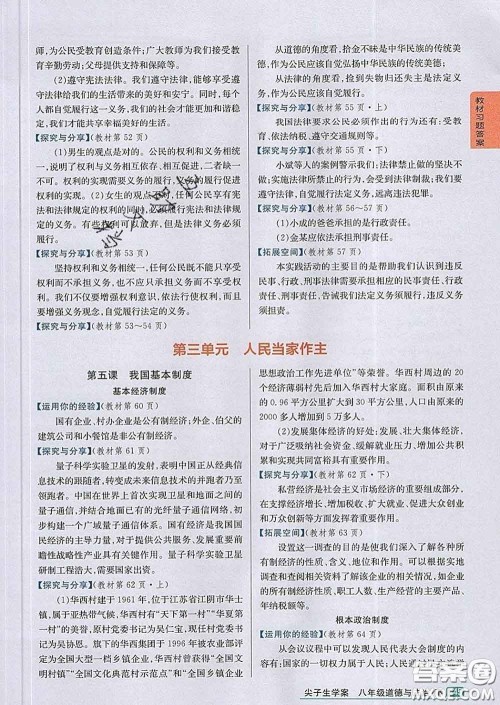 师,为公民受教育创造条件;广大教师为我们接受教
育提供支持和保障等。
(2)遵守宪法法律。我们遵守法律,能够享受遵
守法律给我们的生活带来的美好。我们每个人遵守
法律,我们生活的社会才能更加和谐稳定,同时,每个
人都自觉履行这一义务,我们才能共享幸福美好的生活。
【探究与分享】(教材第 52 页)
(1)男生的观点是对的。公民的权利和义务相统
一,权利义务与义务相互依存、相互促进,二者缺一
不可。权利的实现需要义务的履行,义务的履行促进
权利的实现。(2)女生的观点
宪法和法律规定的权利的同时,必
履行宪法和法律规定的义务。
履行。
【探究与分享】(教材第 53 页)
坚持权利和义务相统一,任何公民既不能只享受
权利而不承担义务,也不应只承担义务而不享受权
利。我们不仅要增强权利意识,依法行使权利,而且
要增强义务观念,自觉履行法定的义务。
【探究与分享】(教材第 53~54 页)
从道德的角度看,拾金不昧是中华民族的传统美
德,作为公民应该自觉弘扬中华民族的传统美德。
从法律的角度看,捡到失物归还失主是法定义
务,作为公民应该自觉履行法定义务。
【探究与分享】(教材第 55 页·上)
我国法律要求公民必须作出的行为还有:受教
育、依法纳税、遵守交通规则等。
【探究与分享】(教材第 55 页·下)
小斌等人的案例警示我们:法律禁止做的坚决不
做;实施法律所禁止的行为,会受到法律制裁;我们要
遵守法律,自觉履行法定义务,远离违法犯罪。
【探究与分享】(教材第 56~57 页)
(1)小成的爸爸承担的是行政责任。
(2)金某应依法承担刑事责任。
【拓展空间】(教材第 57 页)
本实践活动的主要目的是帮助我们认识到违反
民事、行政、刑事法律规定,要依法承担相应的民事责任、
行政责任、刑事责任,告诫我们法定义务须履行。
教材习题答案
第三单元 人民当家作主
第五课 我国基本制度
基本经济制度
【运用你的经验】(教材第 60 页)
国有企业、村办企业是公有制经济;外企、伯父的
建筑公司和小餐馆是非公有制经济。
【探究与分享】(教材第 61 页)
量子科学实验卫星的发射,表明中国正从经典信
息技术的跟随者,转变成未来信息技术的并跑者乃至
领跑者。中国在世界上首次实现卫星和地面之间的
量子通信,并结合地面已有的光纤量子通信网络,初
步构建一个广域量子通信体系。国有经济是我国国
民经济的主导力量,对于提供公共服务、发展重要前
瞻性战略性产业具有关键作用。量子科学实验卫星
研制工程浩大,需要国家出资。
【探究与分享】(教材第 62 页·上)
(1)华西村建于 1961 年,位于江苏省江阴市华士
镇,属亚热带气候,华西村有“天下第一村”“华夏第
一村”的美誉。原村党委书记为吴仁宝,现任村党委
书记为吴协恩。旗下为华西集团于 1996 年被农业部
评定为全国大型一档乡镇企业,华西村曾获得“全国
文明村镇”“全国文化典范村示范点”“全国乡镇企业
思想政治工作先进单位”等荣誉。华西村周边的 20
个经济薄弱村先后加入华西村大家庭。面积由原来
的 0.96 平方公里扩大到 30 平方公里,人口由原来的
2000 多人增加到 5 万多人。
(2)发展集体经济的好处:发展、壮大集体经济,
对于广泛吸纳社会资金、缓解就业压力、增加公共积
累和实现共同富裕具有重要意义。
【探究与分享】(教材第 62 页·下)
私营经济是社会主义市场经济的重要组成部分,
在支撑经济增长、增加税收、扩大就业、促进大众创业
和万众创新等方面发挥着重要作用。
【拓展空间】(教材第 63 页)
设置这一调查的目的是使我们深化了解所有
制经济的性质、含义、地位和作用。可以根据实地
调查和查阅相关资料了解到的企业的所有制经济
性质、职工人数、生产经营的主要产品、年销售总额、
年纳税额等。
根本政治制度
【运用你的经验】(教材第 64 页)
从会议议程中可以发现人民代表大会制度的内
尖子生学案 八年级道德与